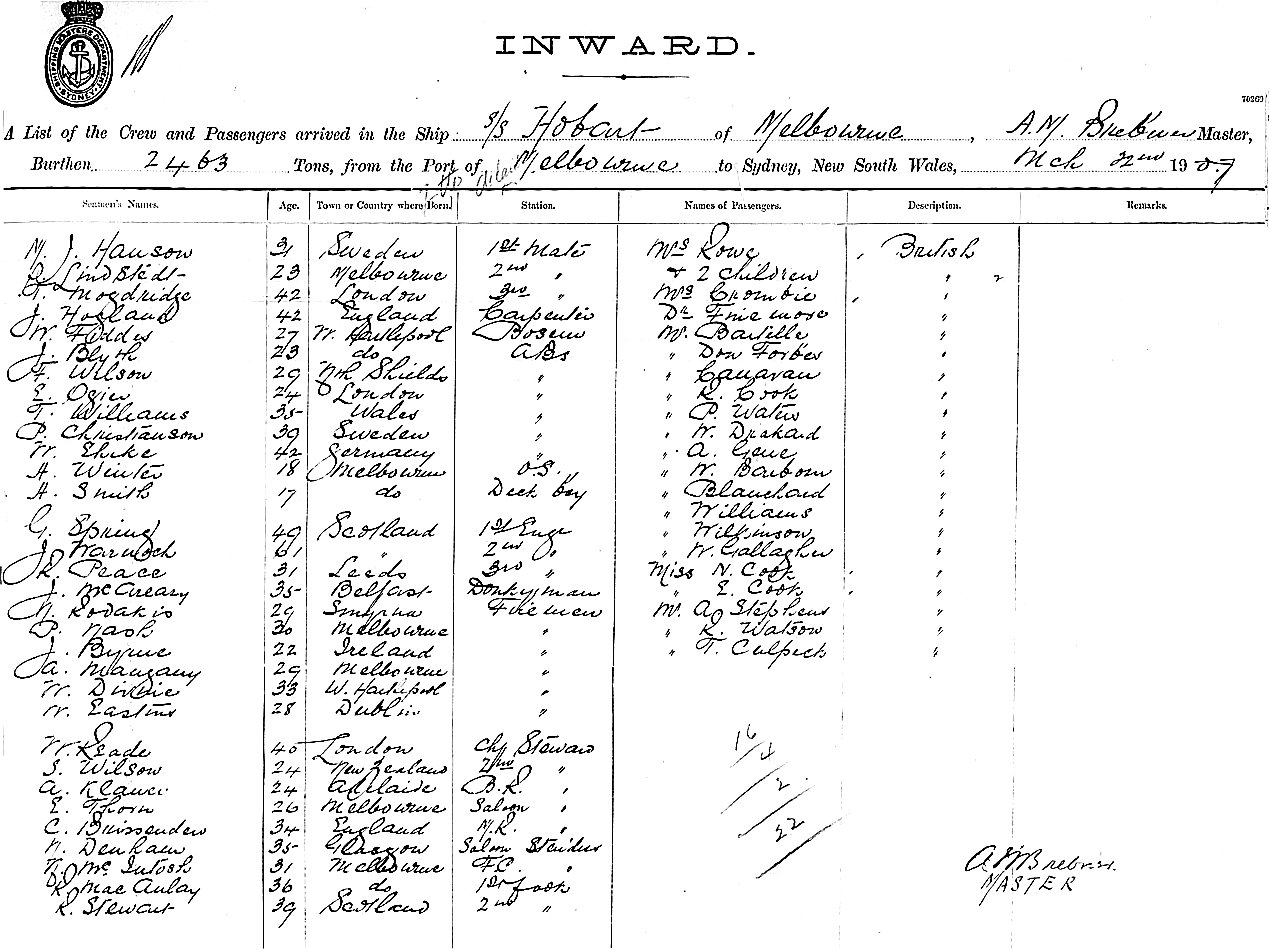 SHIPPING MASTERS DEPARTMENT SYDNEY
INWARD.
70269
A List of the Crew and Passengers arrived in the Ship s/s Hobart of Melbourne, A.M. Brebner Master,
Burthen 2463 Tons, from the Port of Melbourne to Sydney, New South Wales, Mch 22nd 1907
Seamen's Names. Age. Town or Country where Born. Station. Names of Passengers. Description. Remarks.
N. J. Hanson 31 Sweden 1st Mate Mrs Rowe British
Lindstedt 23 Melbourne 2nd " + 2 Children " 2
Mogdridge 42 London 3rd " Mrs Crombie "
J. Holland 42 England Carpenter Dr Finemore "
W. Fiddes 27 W. Hartlepool Bosun Mr. Bartille "
J. Blyth 23 do ABs " Don Forbes "
F. Wilson 29 Nth Shields " " Canavan "
E. Ogier 24 London " " R. Cook "
T. Williams 35 Wales " " P. Waters "
P. Christianson 39 Sweden " " W. Drakard "
W. Ehike 42 Germany " " A. Gene "
A. Winter 18 Melbourne O.S. " W. Barbom "
A. Smith 17 do Deck boy " Blanchard "
" Williams "
G. Spring 49 Scotland 1st Engr " Wilkinson "
J. Warnoch 61 " 2nd " " W. Gallagher "
R. Peace 31 Leeds 3rd " Miss N. Cook "
J. McCreary 35 Belfast Donkyman " E. Cook "
N. Rodakis 29 Smyrna Firemen Mr. A. Stephens "
P. Nash 30 Melbourne " " R. Watson "
J. Byrne 22 Ireland " " T. Culpeck "
A. Mangany 29 Melbourne "
W. Dinnie 33 W. Hartlepool "
W. Eastins 28 Dublin "
W. Reade 40 London Chf Steward
S. Wilson 24 New Zealand 2nd "
A. Klauer 24 Adelaide B.R. "
E. Thorn 26 Melbourne Saloon "
C. Buissenden 34 England M.R. "
N. Denham 35 Glasgow Saloon Stewdess
McIntosh 31 Melbourne F.C. "
R. MacAulay 36 do 1st Cook
R. Stewart 39 Scotland 2nd "
16
1
2
22
A M Brebner.
MASTER